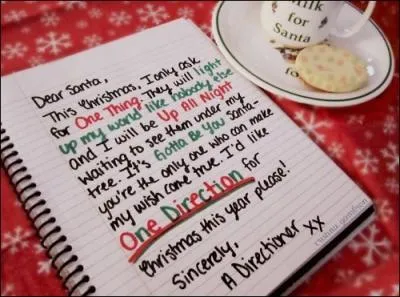 Dear Santa,
This Christmas, I only ask
for One Thing. They will light
up my world like nobody else
and I will be Up All Night
waiting to see them under my
tree. It's Gotta Be You santa-
you're the only one who can make
my wish come true. I'd like
One Direction for
Christmas this year please!
Sincerely,
A Directioner XX
Milk
for
Santa